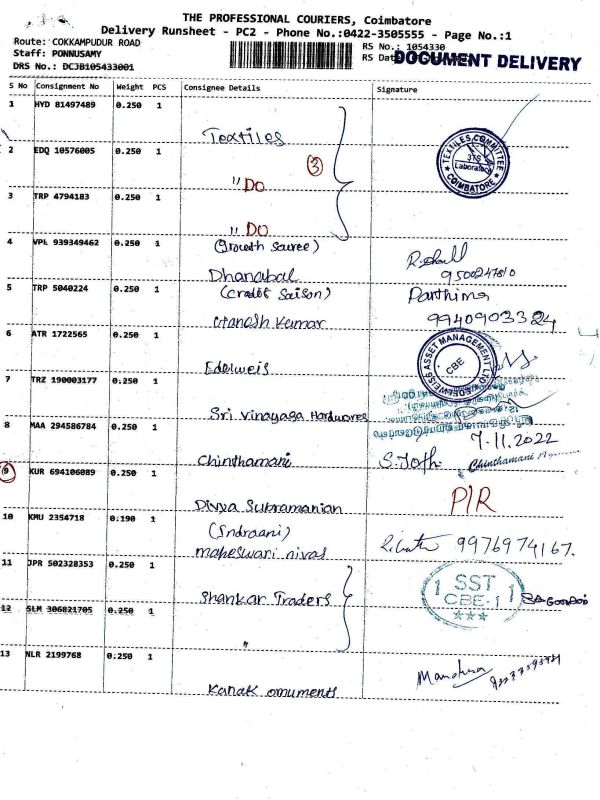 THE PROFESSIONAL COURIERS, Coimbatore
Delivery Runsheet - PC2 - Phone No.:0422-3505555 - Page No.:1
Route: COKKAMPUDUR ROAD
Staff: PONNUSAMY
DRS No.: DCJB105433001
RS No.: 1054330
RS Dat
DOCUMENT DELIVERY
S No Consignment No Weight PCS Consignee Details Signature
1 HYD 81497489 0.250 1
Textiles
TEXTILES COMMITTEE
COIMBATORE
2 EDQ 10576005 0.250 1
3
" DO
3 TRP 4794183 0.250 1
" DO
4 VPL 939349462 0.250 1 (Growth Source)
Dhanabal
9500247810
5 TRP 5040224 0.250 1 (Credit Saison)
Ganesh Kumar
Parthima
9940903324
6 ATR 1722565 0.250 1
Edelweis
EDELWEISS ASSET MANAGEMENT LTD
CBE
7 TRZ 190003177 0.250 1
Sri Vinayaga Hardwares
8 MAA 294586784 0.250 1
7.11.2022
Chinthamani
Chinthamani
9 KUR 694106089 0.250 1
Divya Subramanian
P/R
10 KMU 2354718 0.190 1 (Indraani)
maheswari nivas
9976974167.
11 JPR 502328353 0.250 1
Shankar Traders
1 SST 1
CBE-1
12 SLM 306821705 0.250 1
"
13 NLR 2199768 0.250 1
Kanak ornuments